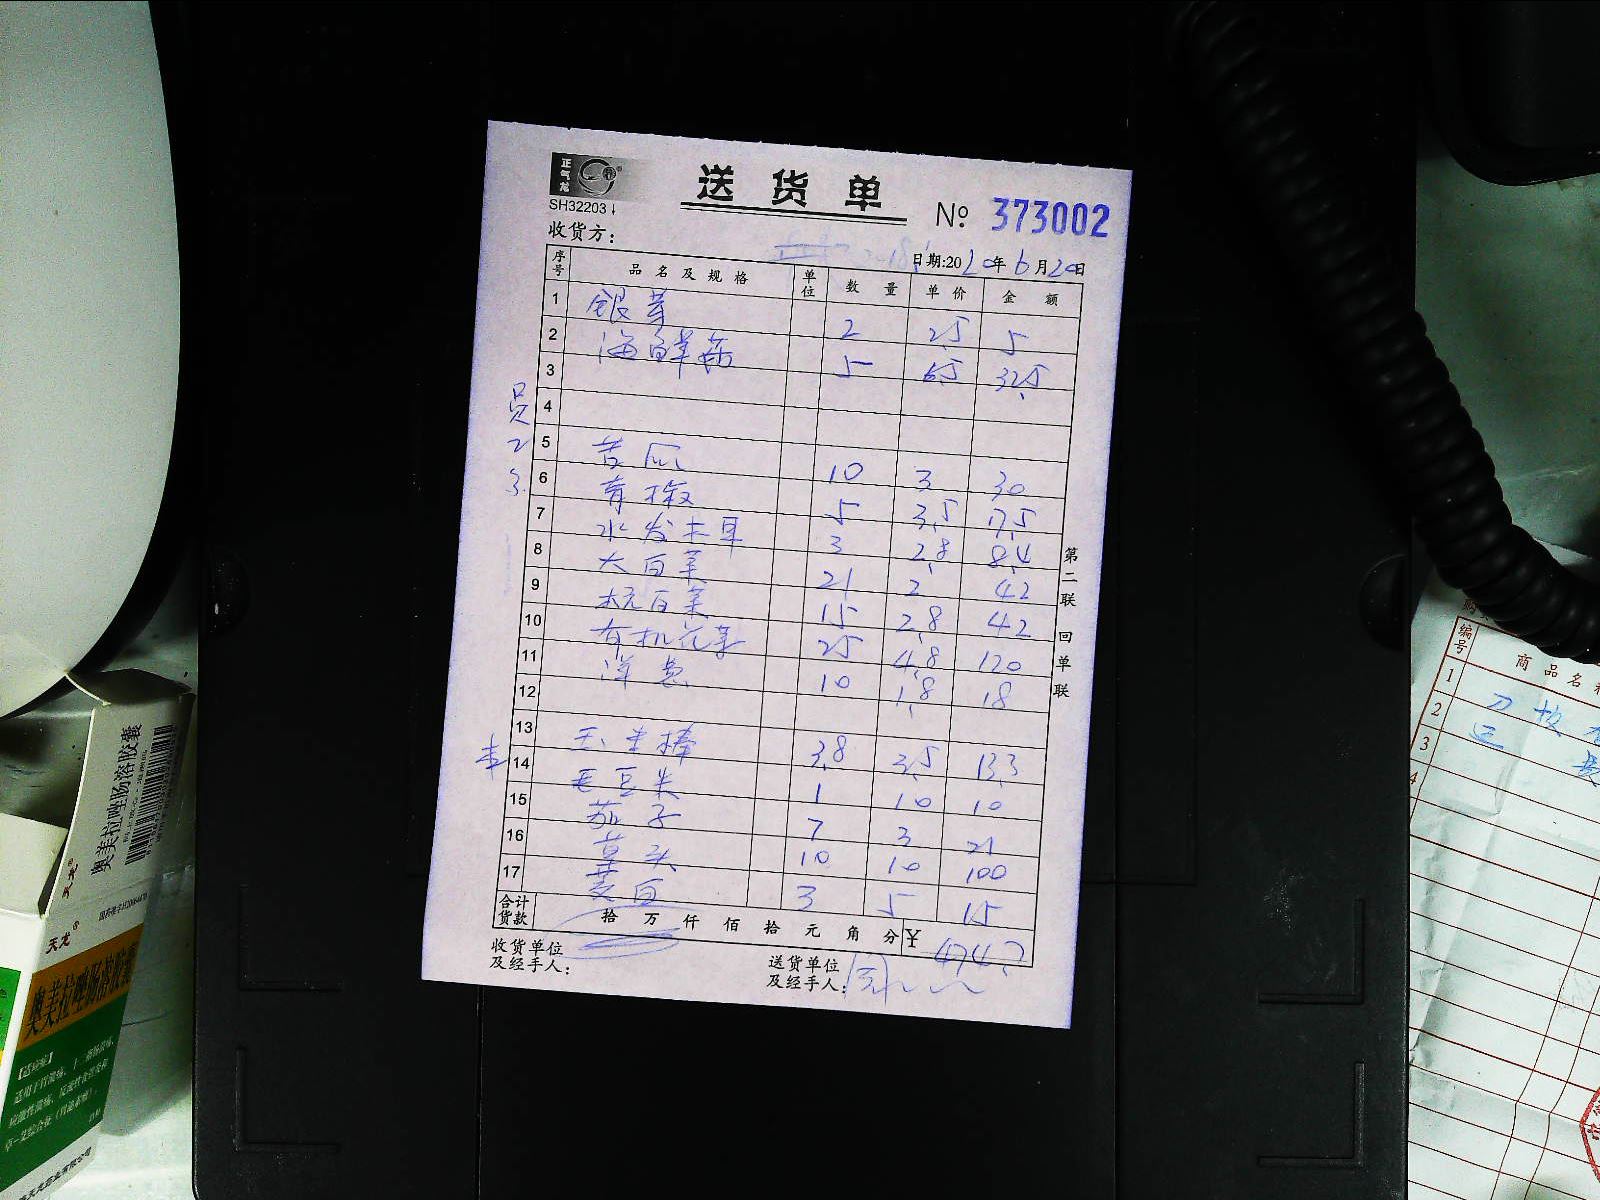 正气龙
送货单
SH32203
№ 373002
收货方：
日期:2020年6月20日
序号 品名及规格 单位 数量 单价 金额
1 银芽 2 2.5 5
2 海鲜菇 5 6.5 32.5
3
4
员
2
3.
5 苦瓜 10 3 30
6 青椒 5 3.5 17.5
7 水发木耳 3 2.8 8.4
8 大白菜 21 2 42
9 杭白菜 15 2.8 42
10 有机花菜 25 4.8 120
11 洋葱 10 1.8 18
12
13 玉米棒 3.8 3.5 13.3
14 毛豆米 1 10 10
15 茄子 7 3 21
16 草头 10 10 100
17 茭白 3 5 15
合计货款 拾万仟佰拾元角分 ¥ 474.7
收货单位及经手人：
送货单位及经手人：
第二联 回单联
奥美拉唑肠溶胶囊
天龙®
天龙®
奥美拉唑肠溶胶囊
【适应症】
编号 商品名
1
2
3
4